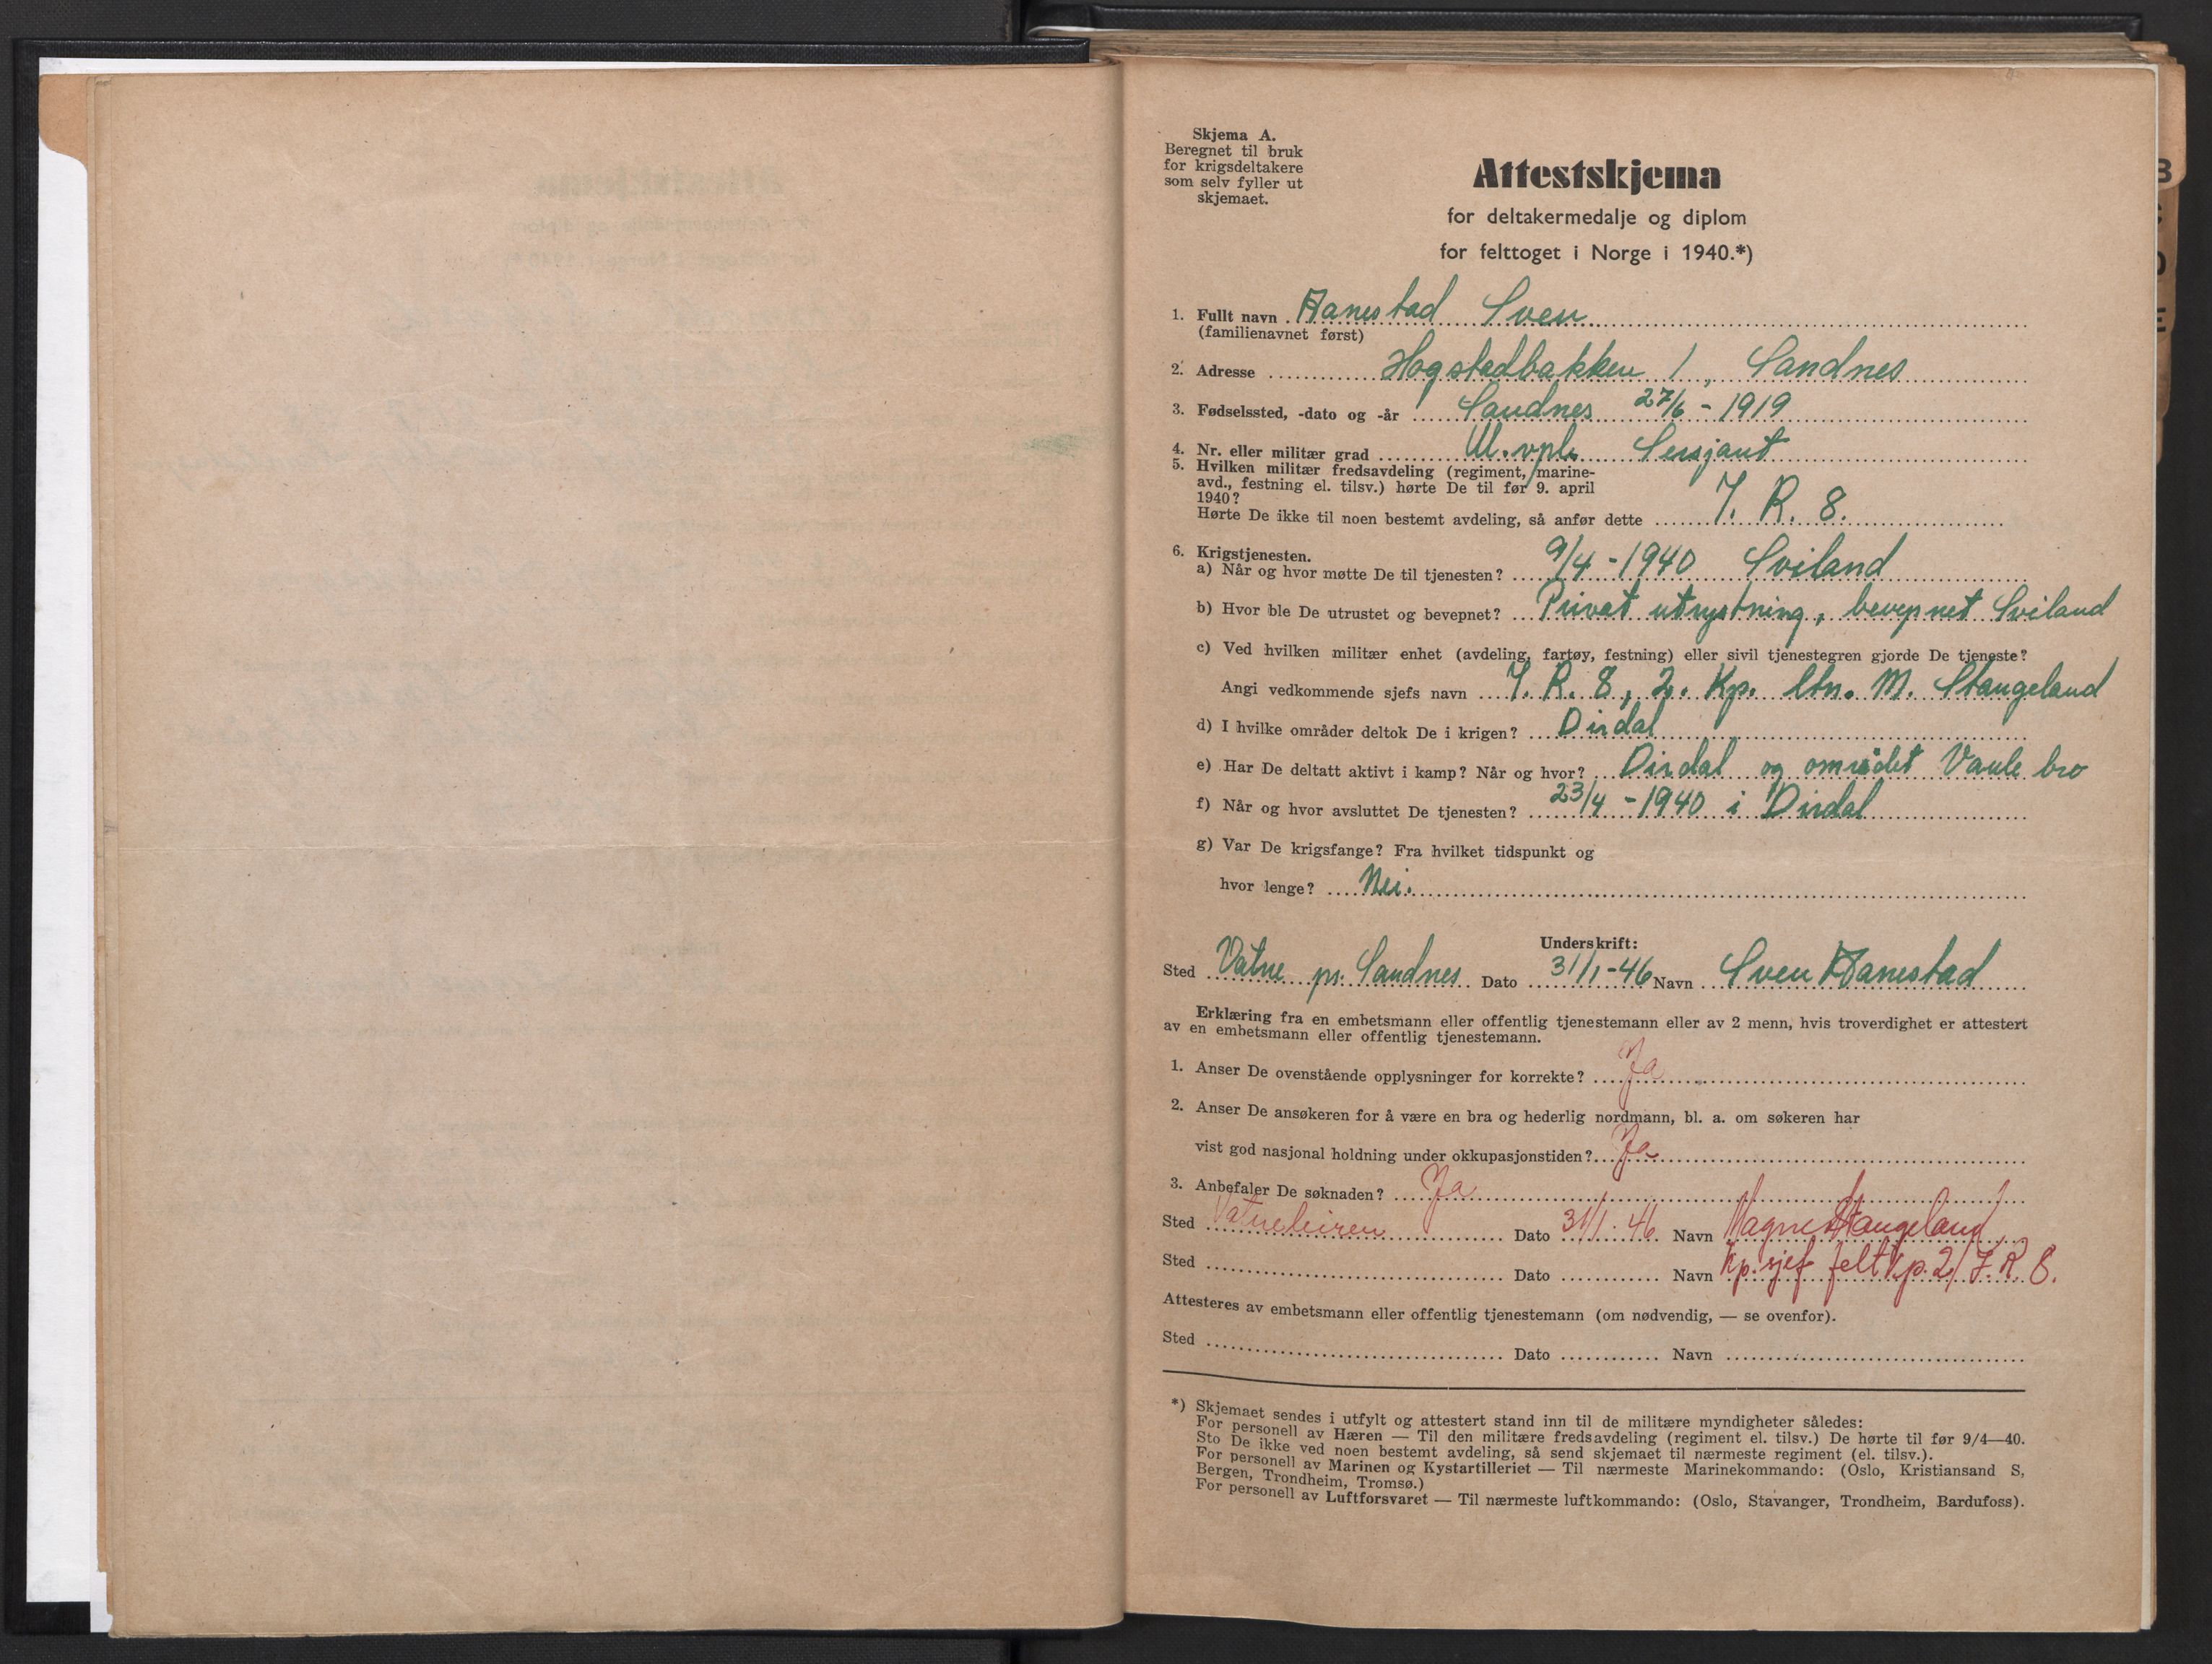 Skjema A.
Beregnet til bruk
for krigsdeltakere
som selv fyller ut
skjemaet.
Attestskjema
for deltakermedalje og diplom
for felttoget i Norge i 1940.*)
1. Fullt navn Aanestad Sven
(familienavnet først)
2. Adresse Hogstadbakken 1, Sandnes
3. Fødselssted, -dato og -år Sandnes 27/6 - 1919
4. Nr. eller militær grad U.vpl. Sersjant
5. Hvilken militær fredsavdeling (regiment, marine-
avd., festning el. tilsv.) hørte De til før 9. april
1940?
Hørte De ikke til noen bestemt avdeling, så anfør dette I. R. 8.
6. Krigstjenesten.
a) Når og hvor møtte De til tjenesten? 9/4 - 1940 Sviland
b) Hvor ble De utrustet og bevepnet? Privat utrystning, bevepnet Sviland
c) Ved hvilken militær enhet (avdeling, fartøy, festning) eller sivil tjenestegren gjorde De tjeneste?
Angi vedkommende sjefs navn I. R. 8, 2. Kp. ltn. M. Stangeland
d) I hvilke områder deltok De i krigen? Dirdal
e) Har De deltatt aktivt i kamp? Når og hvor? Dirdal og området Vaule bro
f) Når og hvor avsluttet De tjenesten? 23/4 - 1940 i Dirdal
g) Var De krigsfange? Fra hvilket tidspunkt og
hvor lenge? Nei.
Underskrift:
Sted Vatne pr. Sandnes Dato 31/1-46 Navn Sven Aanestad
Erklæring fra en embetsmann eller offentlig tjenestemann eller av 2 menn, hvis troverdighet er attestert
av en embetsmann eller offentlig tjenestemann.
1. Anser De ovenstående opplysninger for korrekte? Ja
2. Anser De ansøkeren for å være en bra og hederlig nordmann, bl. a. om søkeren har
vist god nasjonal holdning under okkupasjonstiden? Ja
3. Anbefaler De søknaden? Ja
Sted Vatneleiren Dato 31/1. 46 Navn Magne Stangeland
Sted Dato Navn Kp.sjef feltkp. 2/I.R. 8.
Attesteres av embetsmann eller offentlig tjenestemann (om nødvendig, — se ovenfor).
Sted Dato Navn
*) Skjemaet sendes i utfylt og attestert stand inn til de militære myndigheter således:
For personell av Hæren — Til den militære fredsavdeling (regiment el. tilsv.) De hørte til før 9/4—40.
Sto De ikke ved noen bestemt avdeling, så send skjemaet til nærmeste regiment (el. tilsv.).
For personell av Marinen og Kystartilleriet — Til nærmeste Marinekommando: (Oslo, Kristiansand S,
Bergen, Trondheim, Tromsø.)
For personell av Luftforsvaret — Til nærmeste luftkommando: (Oslo, Stavanger, Trondheim, Bardufoss).